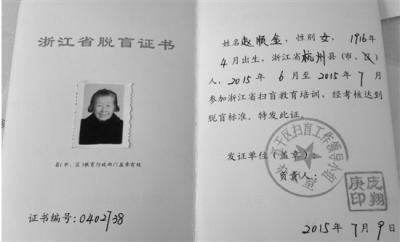 浙江省脱盲证书
县(市、区)教育行政部门盖章有效
证书编号:0402738
姓名 赵顺金,性别 女,1916年
4月出生,浙江省杭州县(市、区)
人,2015年 6月至 2015年 7月
参加浙江省扫盲教育培训,经考核达到
脱盲标准,特发此证。
发证单位(盖章)
负责人:
庞翔
庚印
2015年 7月 9日